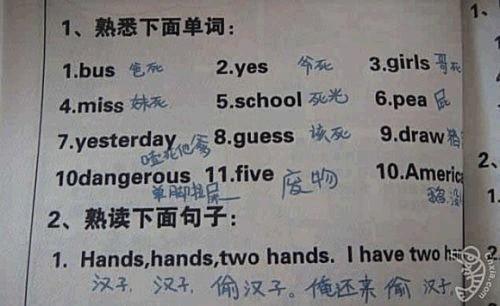 1、熟悉下面单词：
1.bus 爸死 2.yes 爷死 3.girls 哥死
4.miss 妹死 5.school 死光 6.pea 屁
7.yesterday 8.guess 该死 9.draw
噎死他爹
10dangerous 11.five 废物 10.America
单脚拉屎
2、熟读下面句子：
1. Hands,hands,two hands. I have two
汉子，汉子，偷汉子。俺还来偷汉子